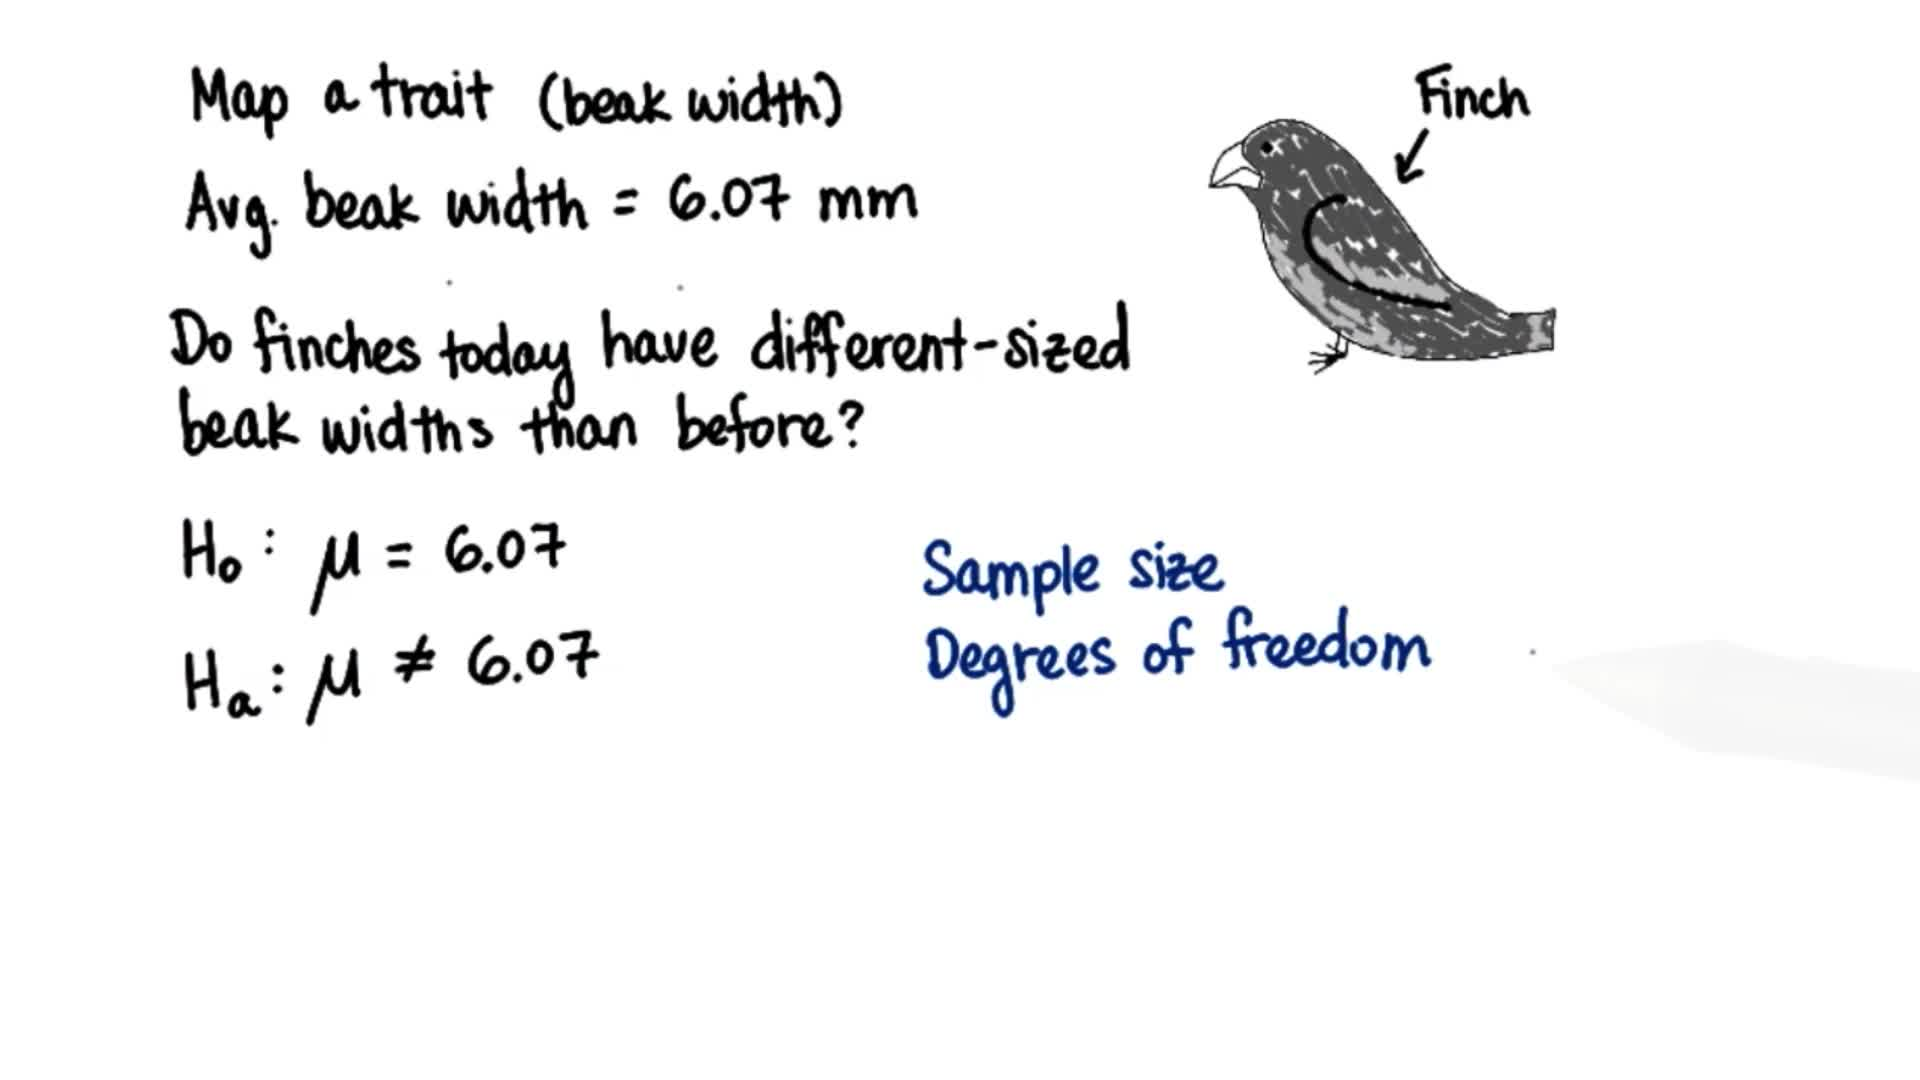 Map a trait (beak width)
Avg. beak width = 6.07 mm
Finch
Do finches today have different-sized
beak widths than before?
H₀: μ = 6.07
Hₐ: μ ≠ 6.07
Sample size
Degrees of freedom